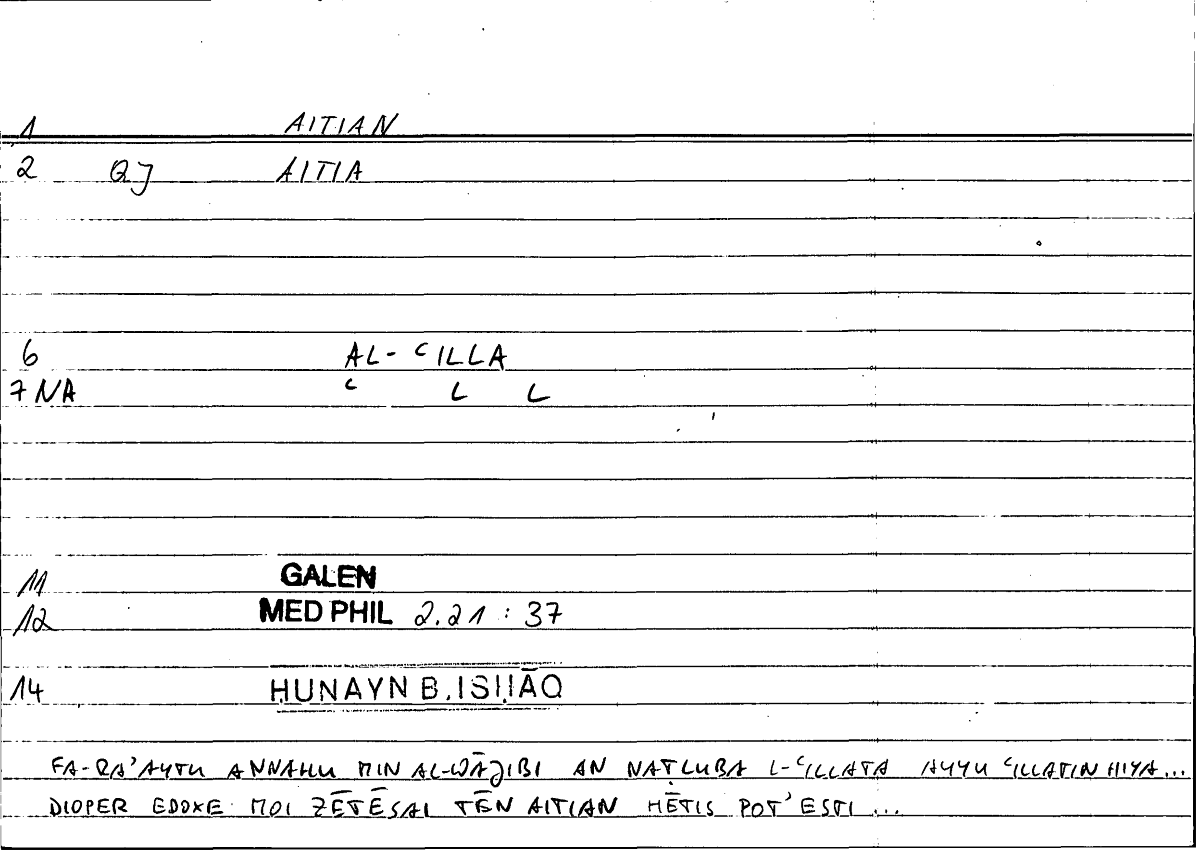 1 AITIAN
2 QJ AITIA
6 AL-ʿILLA
7 NA ʿ L L
11 GALEN
12 MED PHIL 2.21 : 37
14 ḤUNAYN B. ISḤĀQ
FA-RA'AYTU ANNAHU MIN AL-WĀǦIBI AN NAṬLUBA L-ʿILLATA AYYU ʿILLATIN HIYA...
DIOPER EDOXE MOI ZĒTĒSAI TĒN AITIAN HĒTIS POT'ESTI...